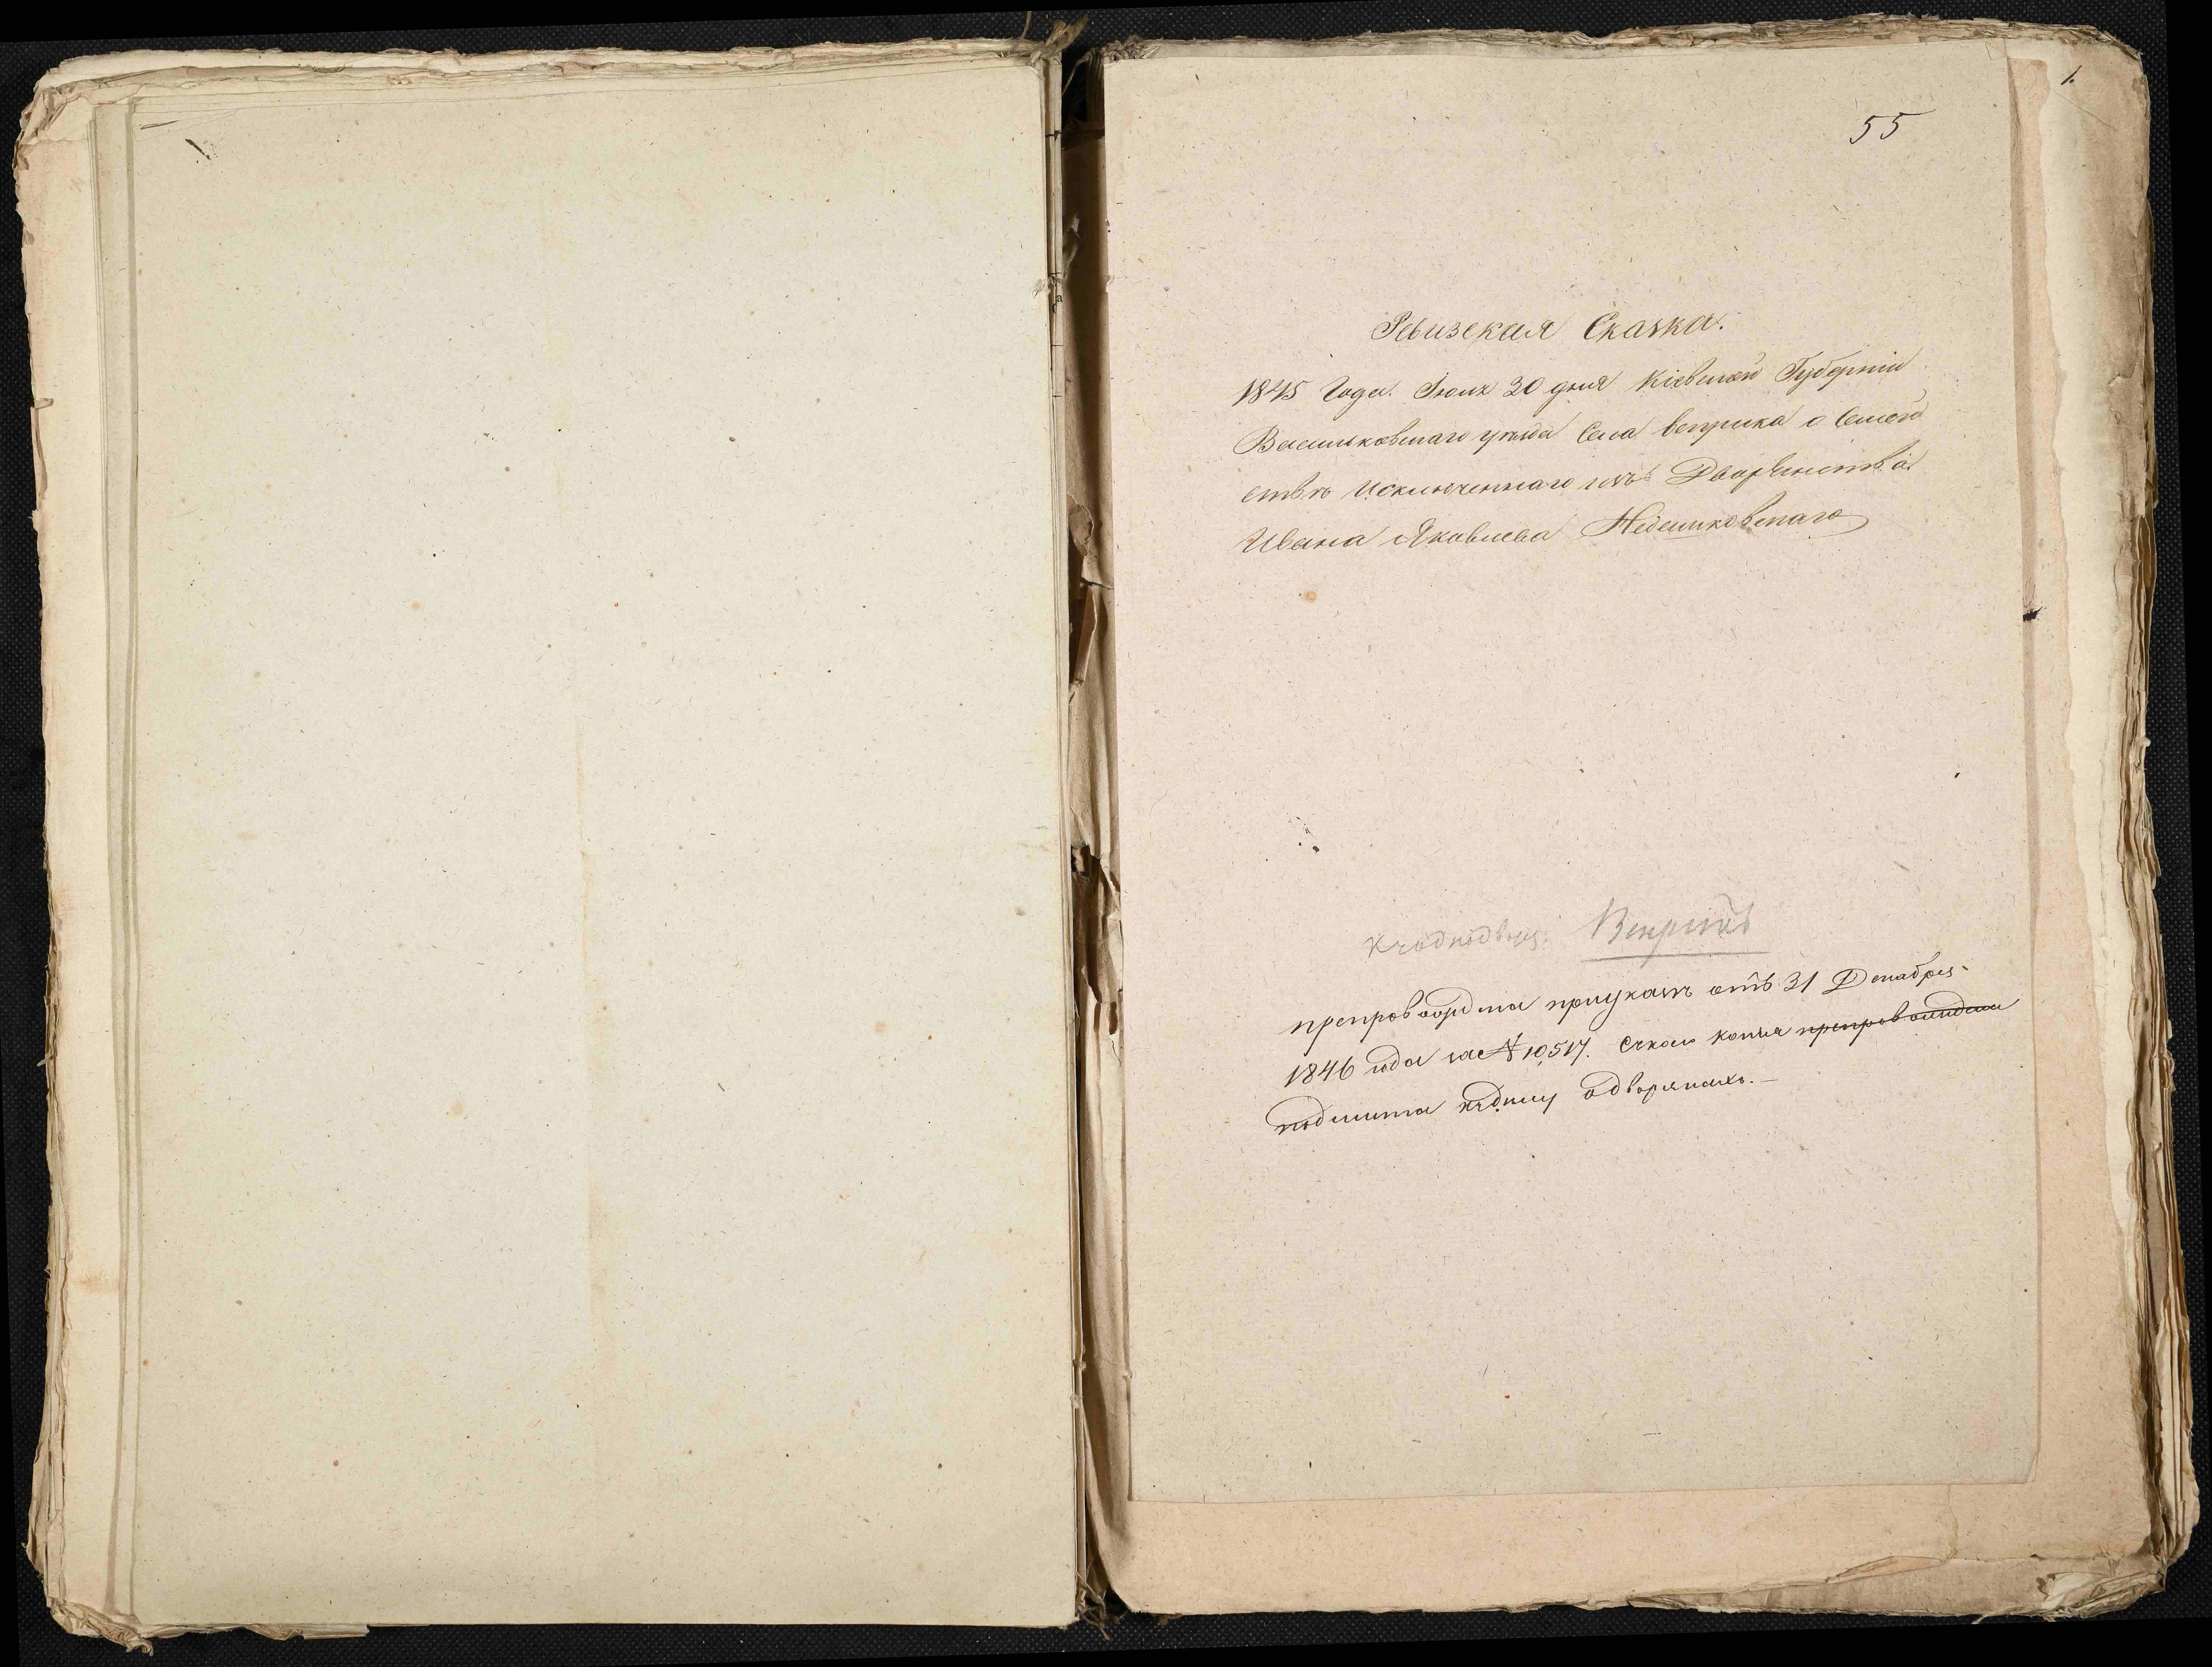 1.
55
Ревизская Сказка.
1845 Года. Іюня 30 дня Кіевской Губерніи
Васильковскаго уезда Села веприка о Семей
ствѣ исключеннаго изъ Дворянства
Ивана Яковлева
Веприкъ
препровождена приуказѣ отъ 31 Декабря
1846 года за № 10,517. Скаго копия препровождена
подшита кделу одворянахъ.—